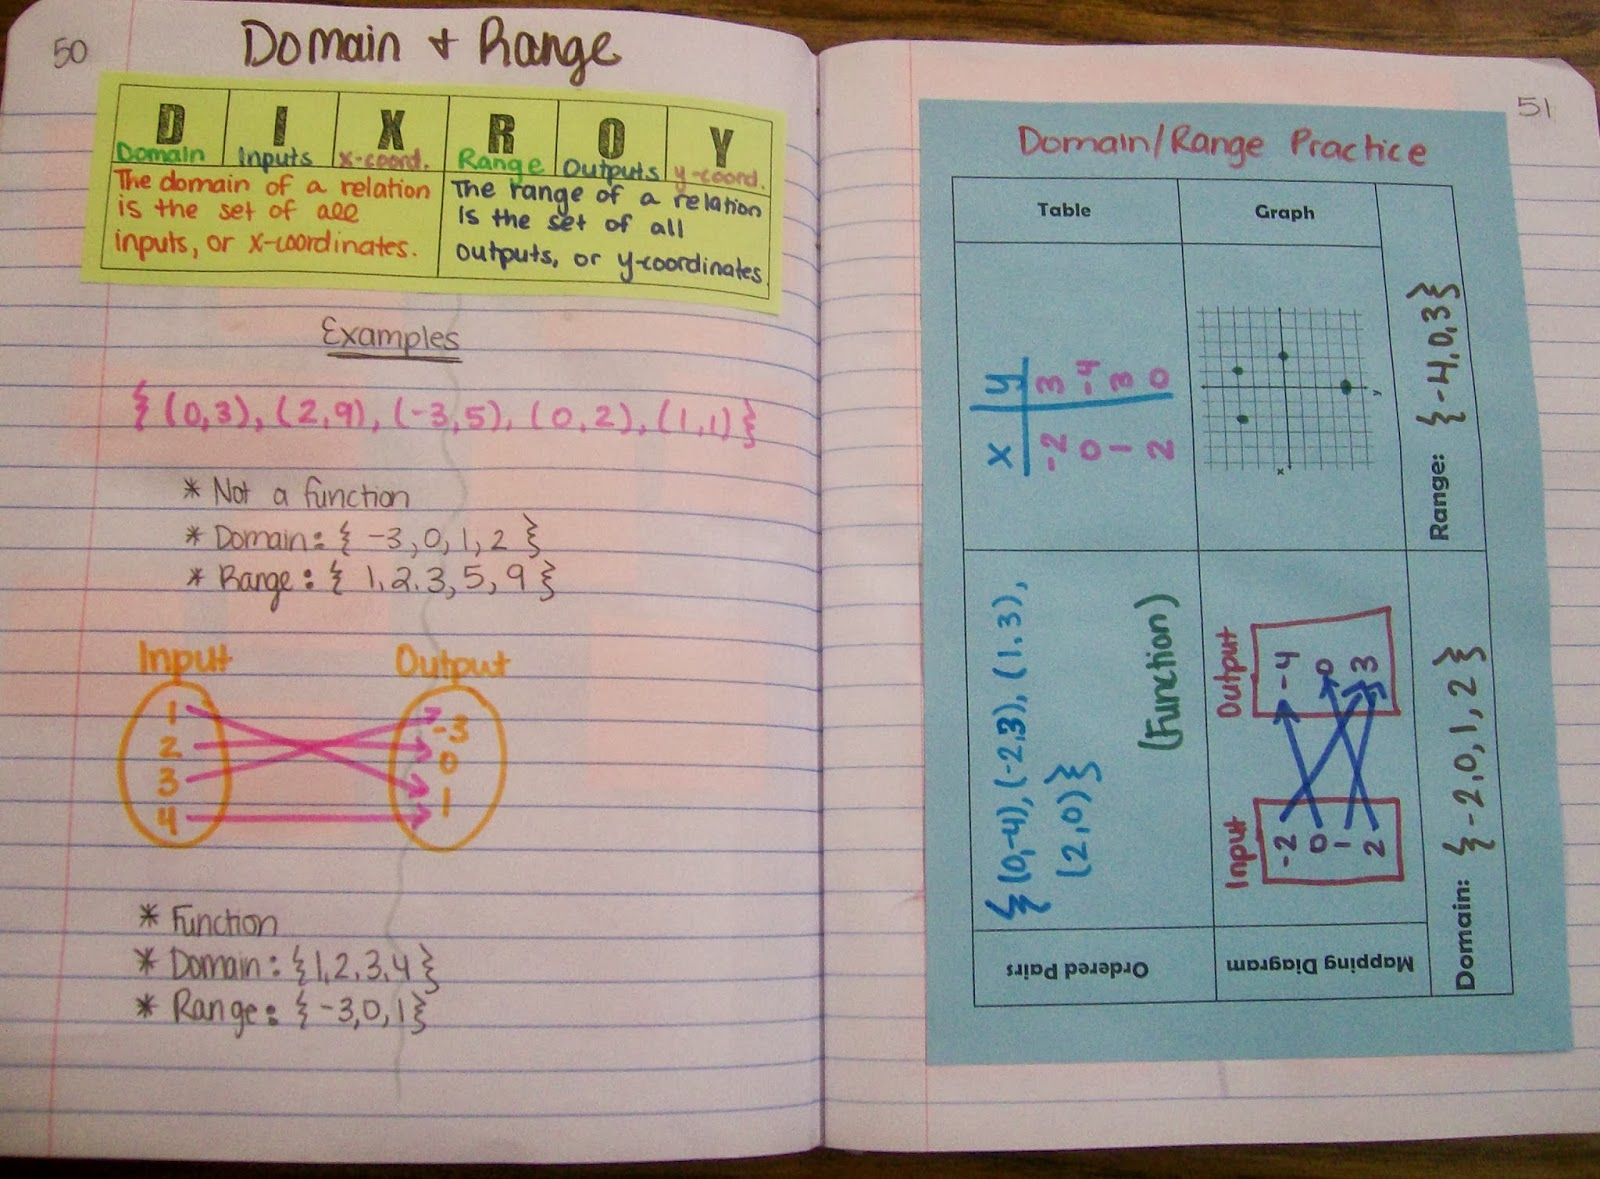 50
Domain + Range
D I X R O Y
Domain Inputs x-coord. Range Outputs y-coord.
The domain of a relation
is the set of all
inputs, or x-coordinates.
The range of a relation
is the set of all
outputs, or y-coordinates
Examples
{(0,3), (2,9), (-3,5), (0,2), (1,1)}
* Not a function
* Domain: { -3, 0, 1, 2 }
* Range: { 1, 2, 3, 5, 9 }
Input Output
1
2
3
4
-3
0
1
* Function
* Domain: {1, 2, 3, 4}
* Range: { -3, 0, 1}
51
Domain/Range Practice
Ordered Pairs
{(0,-4), (-2,3), (1,3),
(2,0)}
(Function)
Table
x y
-2 3
0 -4
1 3
2 0
Mapping Diagram
Input Output
-2
0
1
2
-4
0
3
Graph
x
y
Domain: { -2, 0, 1, 2 }
Range: { -4, 0, 3 }